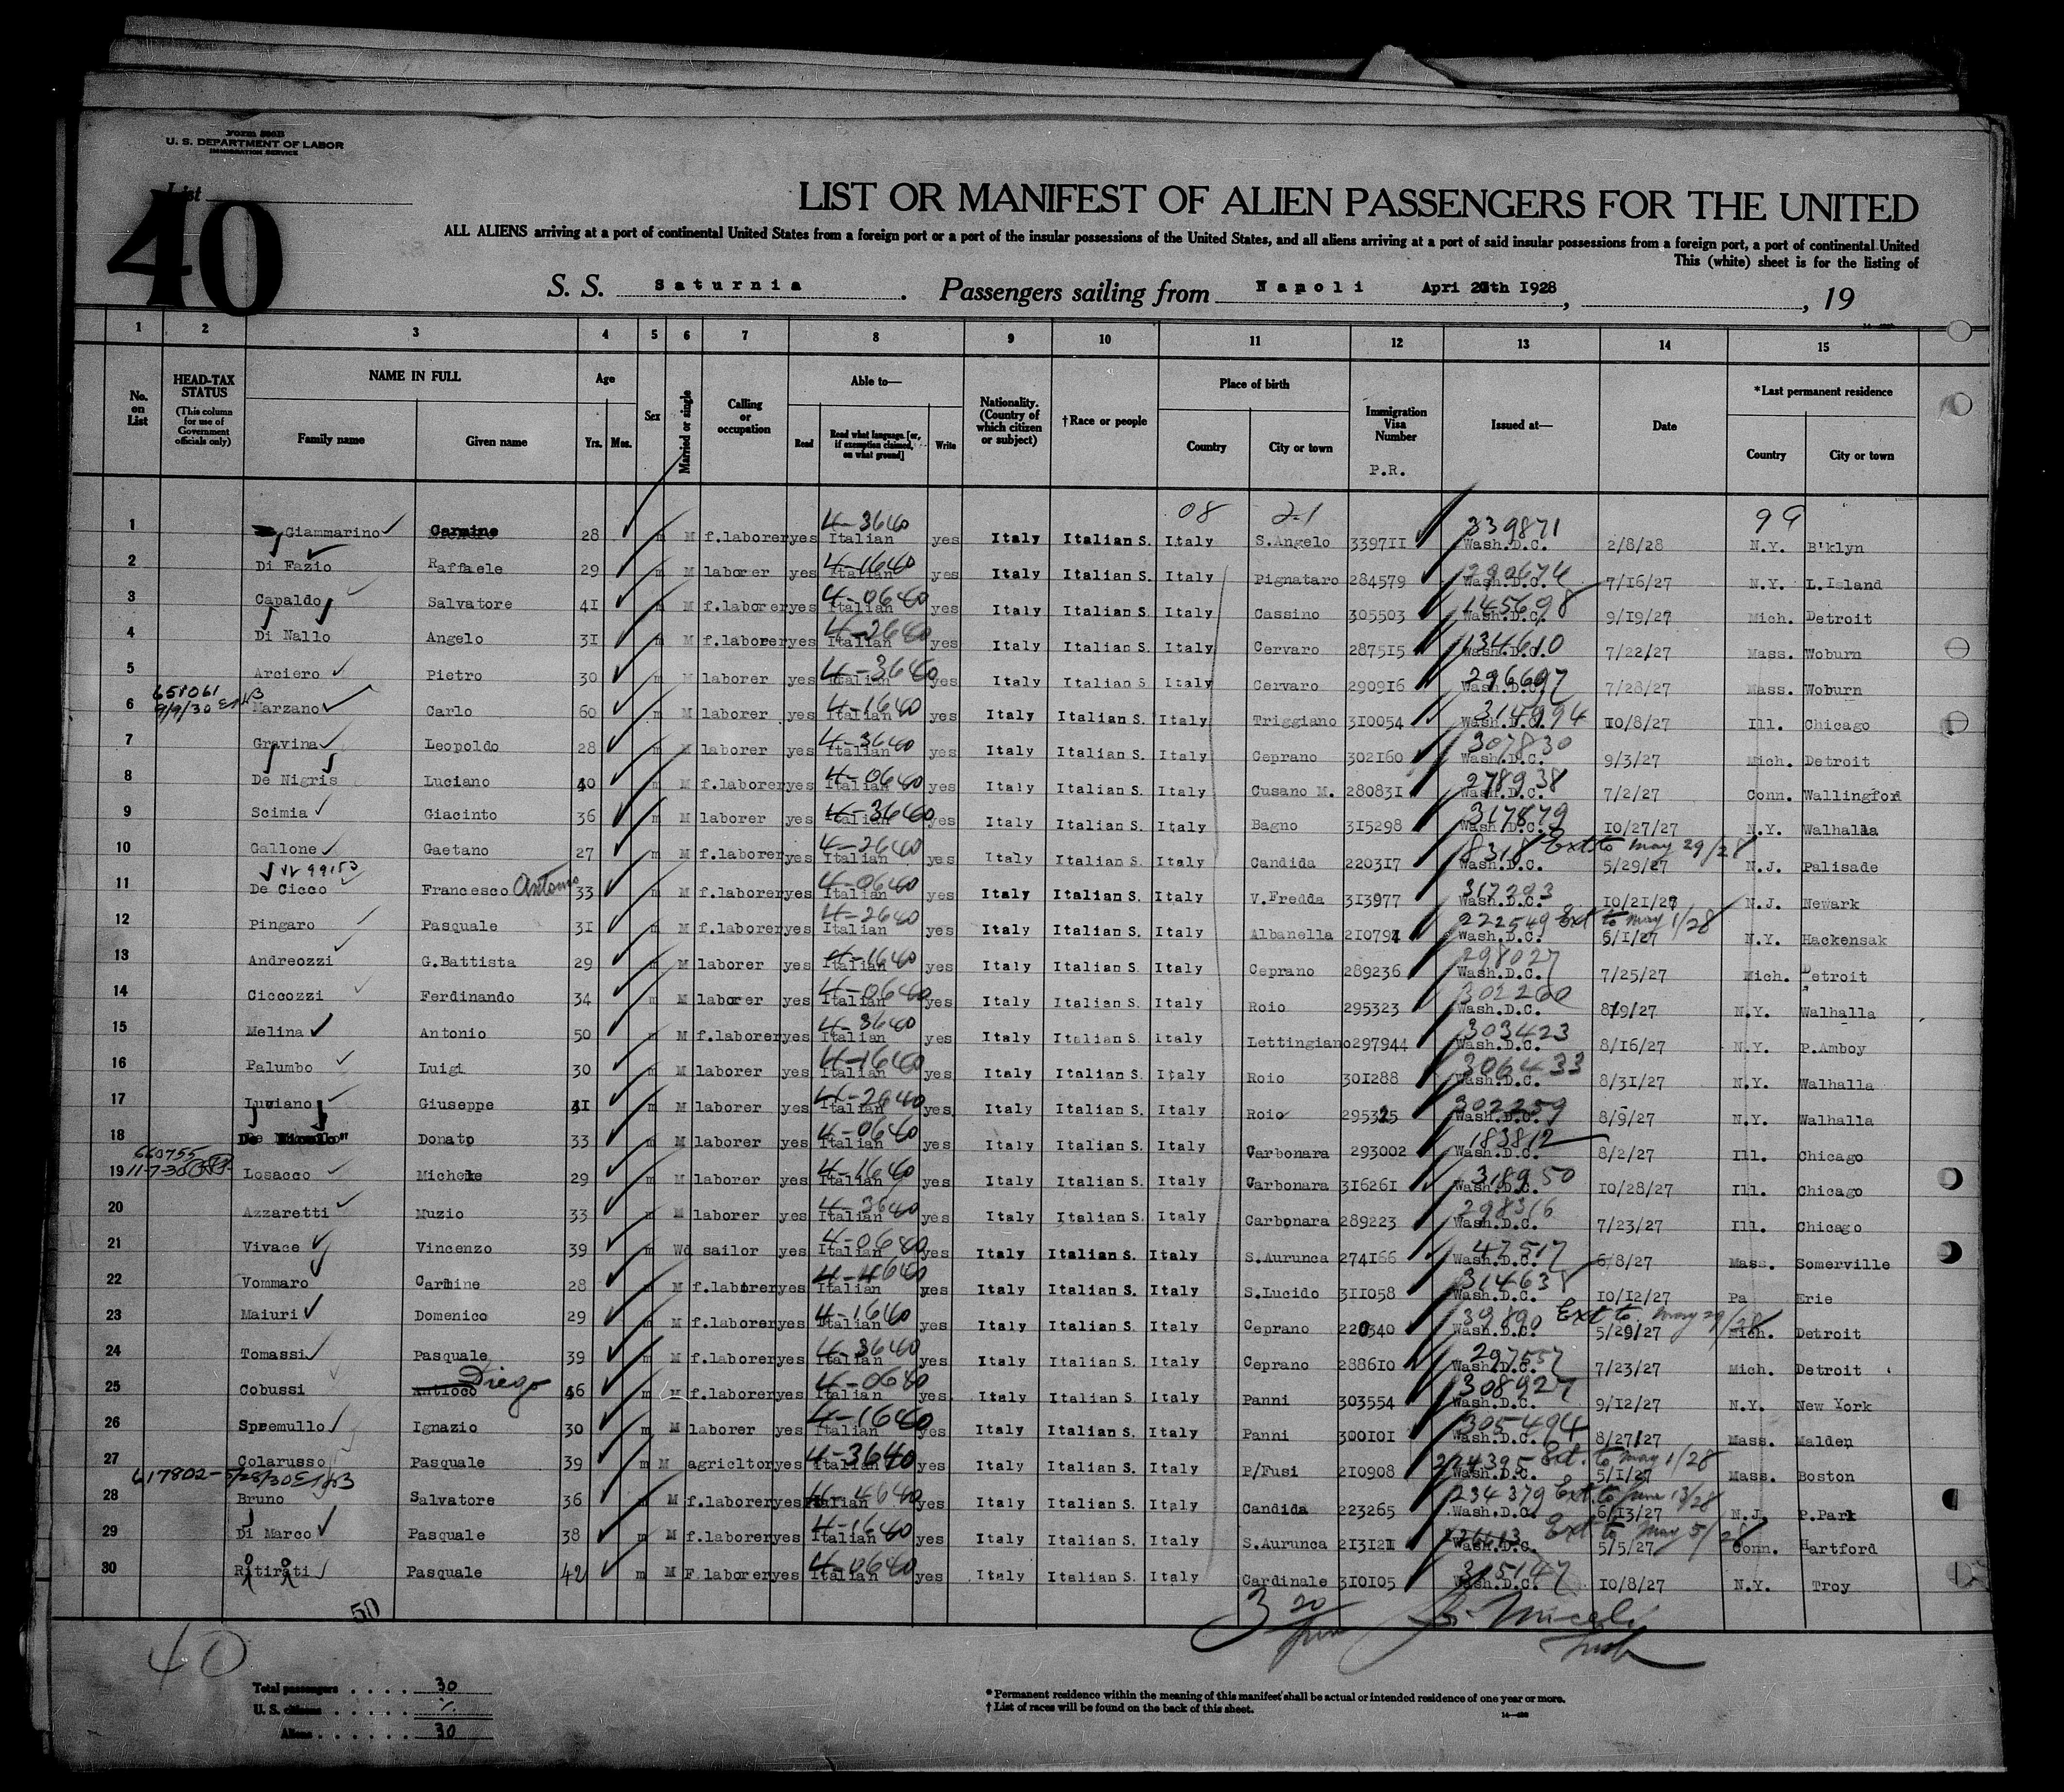 Form 500B
U. S. DEPARTMENT OF LABOR
IMMIGRATION SERVICE
List
40
LIST OR MANIFEST OF ALIEN PASSENGERS FOR THE UNITED
ALL ALIENS arriving at a port of continental United States from a foreign port or a port of the insular possessions of the United States, and all aliens arriving at a port of said insular possessions from a foreign port, a port of continental United
This (white) sheet is for the listing of
S. S. Saturnia. Passengers sailing from Napoli Apri 20th 1928, , 19
1 2 3 4 5 6 7 8 9 10 11 12 13 14 15
No. on List HEAD-TAX STATUS (This column for use of Government officials only) NAME IN FULL Family name Given name Age Yrs. Mos. Sex Married or single Calling or occupation Able to— Read Read what language [or, if exemption claimed, on what ground] Write Nationality. (Country of which citizen or subject) †Race or people Place of birth Country City or town Immigration Visa Number P.R. Issued at— Date *Last permanent residence Country City or town
08 21 99
1 Giammarino Carmine 28 m M f.laborer yes 4-3640 Italian yes Italy Italian S. Italy S.Angelo 339711 339871 Wash.D.C. 2/8/28 N.Y. B'klyn
2 Di Fazio Raffaele 29 m M laborer yes 4-1640 Italian yes Italy Italian S. Italy Pignataro 284579 Wash.D.C. 7/16/27 N.Y. L.Island
3 Capaldo Salvatore 41 m M f.laborer yes 4-0640 Italian yes Italy Italian S. Italy Cassino 305503 145698 Wash.D.C. 9/19/27 Mich. Detroit
4 Di Nallo Angelo 31 m M f.laborer yes 4-2640 Italian yes Italy Italian S. Italy Cervaro 287515 134610 Wash.D.C. 7/22/27 Mass. Woburn
5 Arciero Pietro 30 m M laborer yes 4-3640 Italian yes Italy Italian S Italy Cervaro 290916 296697 Wash.D.C. 7/28/27 Mass. Woburn
651061 9/9/30
6 Marzano Carlo 60 m M laborer yes 4-1640 Italian yes Italy Italian S. Italy Triggiano 310054 314994 Wash.D.C. 10/8/27 Ill. Chicago
7 Gravina Leopoldo 28 m M laborer yes 4-3640 Italian yes Italy Italian S. Italy Ceprano 302160 307830 Wash.D.C. 9/3/27 Mich. Detroit
8 De Nigris Luciano 40 m M f.laborer yes 4-0640 Italian yes Italy Italian S. Italy Cusano M. 280831 278938 Wash.D.C. 7/2/27 Conn. Wallingford
9 Scimia Giacinto 36 m M laborer yes 4-3640 Italian yes Italy Italian S. Italy Bagno 315298 317879 Wash.D.C. 10/27/27 N.Y. Walhalla
10 Gallone Gaetano 27 m M f.laborer yes 4-2640 Italian yes Italy Italian S. Italy Candida 220317 8318 Ext to May 29/28 Wash.D.C. 5/29/27 N.J. Palisade
99153
11 De Cicco Francesco Antonio 33 m M f.laborer yes 4-0640 Italian yes Italy Italian S. Italy V.Fredda 313977 317293 Wash.D.C. 10/21/27 N.J. Newark
12 Pingaro Pasquale 31 m M f.laborer yes 4-2640 Italian yes Italy Italian S. Italy Albanella 210794 222549 Ext to May 1/28 Wash.D.C. 5/1/27 N.Y. Hackensak
13 Andreozzi G.Battista 29 m M laborer yes 4-1640 Italian yes Italy Italian S. Italy Ceprano 289236 298027 Wash.D.C. 7/25/27 Mich. Detroit
14 Ciccozzi Ferdinando 34 m M laborer yes 4-0640 Italian yes Italy Italian S. Italy Roio 295323 302260 Wash.D.C. 8/9/27 N.Y. Walhalla
15 Melina Antonio 50 m M f.laborer yes 4-3640 Italian yes Italy Italian S. Italy Lettingiano 297944 303423 Wash.D.C. 8/16/27 N.Y. P.Amboy
16 Palumbo Luigi 30 m M laborer yes 4-1640 Italian yes Italy Italian S. Italy Roio 301288 306433 Wash.D.C. 8/31/27 N.Y. Walhalla
17 Luciano Giuseppe 41 m M laborer yes 4-2640 Italian yes Italy Italian S. Italy Roio 295325 302259 Wash.D.C. 8/9/27 N.Y. Walhalla
18 De Donato 33 m M laborer yes 4-0640 Italian yes Italy Italian S. Italy Carbonara 293002 183812 Wash.D.C. 8/2/27 Ill. Chicago
660755
19 11-7-30 Losacco Michele 29 m M laborer yes 4-1640 Italian yes Italy Italian S. Italy Carbonara 316261 318950 Wash.D.C. 10/28/27 Ill. Chicago
20 Azzaretti Muzio 33 m M laborer yes 4-3640 Italian yes Italy Italian S. Italy Carbonara 289223 298316 Wash.D.C. 7/23/27 Ill. Chicago
21 Vivace Vincenzo 39 m Wd sailor yes 4-0640 Italian yes Italy Italian S. Italy S.Aurunca 274166 47517 Wash.D.C. 6/8/27 Mass. Somerville
22 Vommaro Carmine 28 m M f.laborer yes 4-4640 Italian yes Italy Italian S. Italy S.Lucido 311058 314638 Wash.D.C. 10/12/27 Pa Erie
23 Maiuri Domenico 29 m M f.laborer yes 4-1640 Italian yes Italy Italian S. Italy Ceprano 220340 39890 Ext to May 29/28 Wash.D.C. 5/29/27 Mich. Detroit
24 Tomassi Pasquale 39 m M f.laborer yes 4-3640 Italian yes Italy Italian S. Italy Ceprano 288610 297557 Wash.D.C. 7/23/27 Mich. Detroit
25 Cobussi Antioco Diego 46 m M f.laborer yes 4-0640 Italian yes Italy Italian S. Italy Panni 303554 308927 Wash.D.C. 9/12/27 N.Y. New York
26 Spremullo Ignazio 30 m M laborer yes 4-1640 Italian yes Italy Italian S. Italy Panni 300101 305494 Wash.D.C. 8/27/27 Mass. Malden
27 Colarusso Pasquale 39 m M agricltor yes 4-3640 Italian yes Italy Italian S. Italy P/Fusi 210908 224395 Ext. to May 1/28 Wash.D.C. 5/1/27 Mass. Boston
617802-5/28/30
28 Bruno Salvatore 36 m M f.laborer yes 4-4640 Italian yes Italy Italian S. Italy Candida 223265 234379 Ext. to June 13/28 Wash.D.C. 6/13/27 N.J. P.Park
29 Di Marco Pasquale 38 m M f.laborer yes 4-1640 Italian yes Italy Italian S. Italy S.Aurunca 213121 Ext to May 5/28 Wash.D.C. 5/5/27 Conn. Hartford
30 Ritirati Pasquale 42 m M F.laborer yes 4-0640 Italian yes Italy Italian S. Italy Cardinale 310105 315147 Wash.D.C. 10/8/27 N.Y. Troy
50
3 20
40
Total passengers . . . . 30
U. S. citizens . . . . .
Aliens . . . . . . . 30
* Permanent residence within the meaning of this manifest shall be actual or intended residence of one year or more.
† List of races will be found on the back of this sheet.